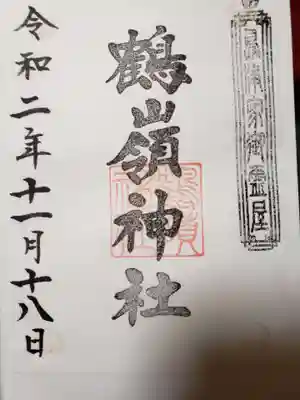 島津家御霊屋
鶴嶺神社
令和二年十一月十八日